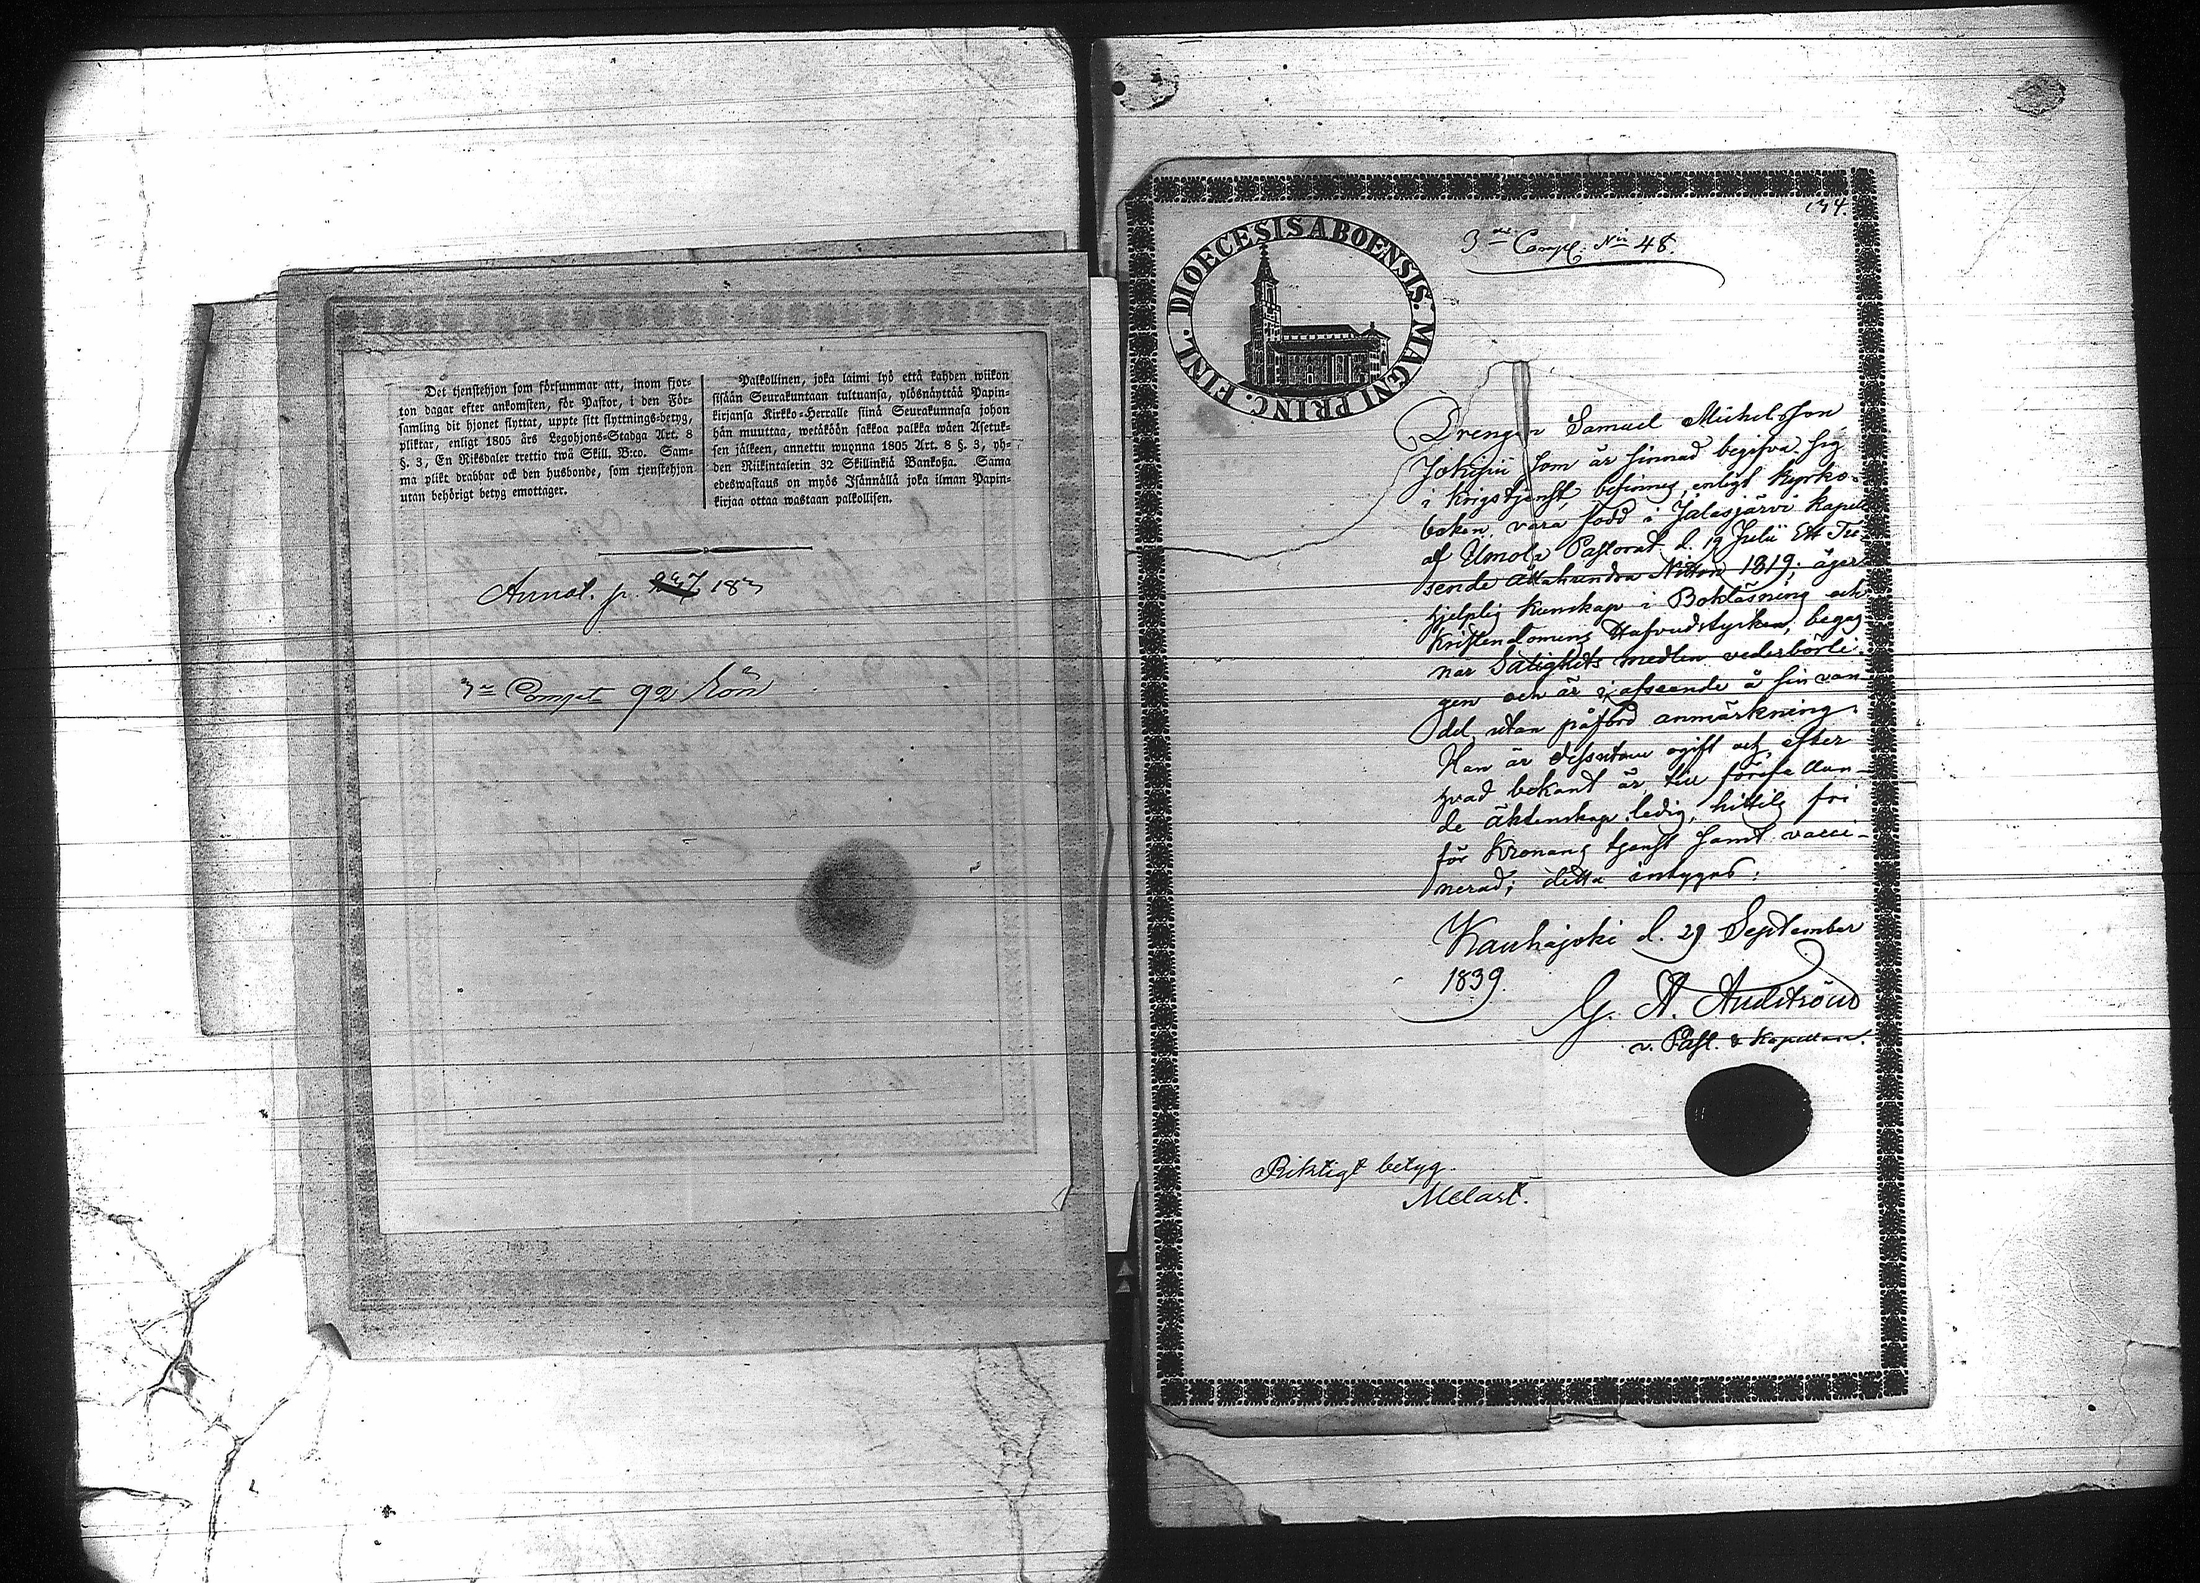 Det tjenstehjon som försummar att, inom fjor-
ton dagar efter ankomsten, för Pastor, i den För-
samling dit hjonet flyttat, uppte sitt flyttnings-betyg,
pliktar, enligt 1805 års Legohjons-Stadga Art. 8
§. 3, En Riksdaler trettio twå Skill. B:co. Sam-
ma plikt drabbar ock den husbonde, som tjenstehjon
utan behörigt betyg emottager.
Palkollinen, joka laimi lyö että kahden wiikon
sisään Seurakuntaan tultuansa, ylösnäyttää Papin-
kirjansa Kirkko-Herralle siinä Seurakunnasa johon
hän muuttaa, wetäköön sakkoa palkka wäen Asetuk-
sen jälkeen, annettu wuonna 1805 Art. 8 §. 3, yh-
den Riikintalerin 32 Skillinkiä Bankosa. Sama
edeswastaus on myös Isännällä joka ilman Papin-
kirjaa ottaa wastaan palkollisen.
Annot. p. 183
3ne Compt 92 Rön
134.
3ne Compt. No 48.
DIOECESIS ABOENSIS. MAGNI PRINC. FINL.
Drengen Samuel Michelsson
Jokipii som är sinnad begifva sig
i Krigstjenst, befinnes, enligt Kyrko-
boken, vara född i Jalasjärvi Kapell
af Ilmola Pastorat d. 19 Julii Ett Tu-
sende Åttahundra Nitton 1819; äger
hjelplig kunskap i Bokläsning och
Kristendomens Hufvudstycken, begag-
nar Salighets medlen vederbörli-
gen och är i afseende å sin van-
del utan påförd anmärkning.
Han är dessutom ogift och, efter
hvad bekant är, till förefallan-
de äktenskap ledig, hittils fri
för Kronans tjenst samt vacci-
nerad; detta intygas:
Kauhajoki d. 29 September
1839.
G. A.
v. Past. & Kapellan.
Riktigt betyg.
Melart.